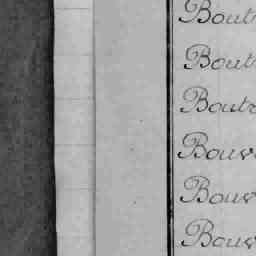 Bout
Bout
Bout
Bouv
Bouv
Bouv